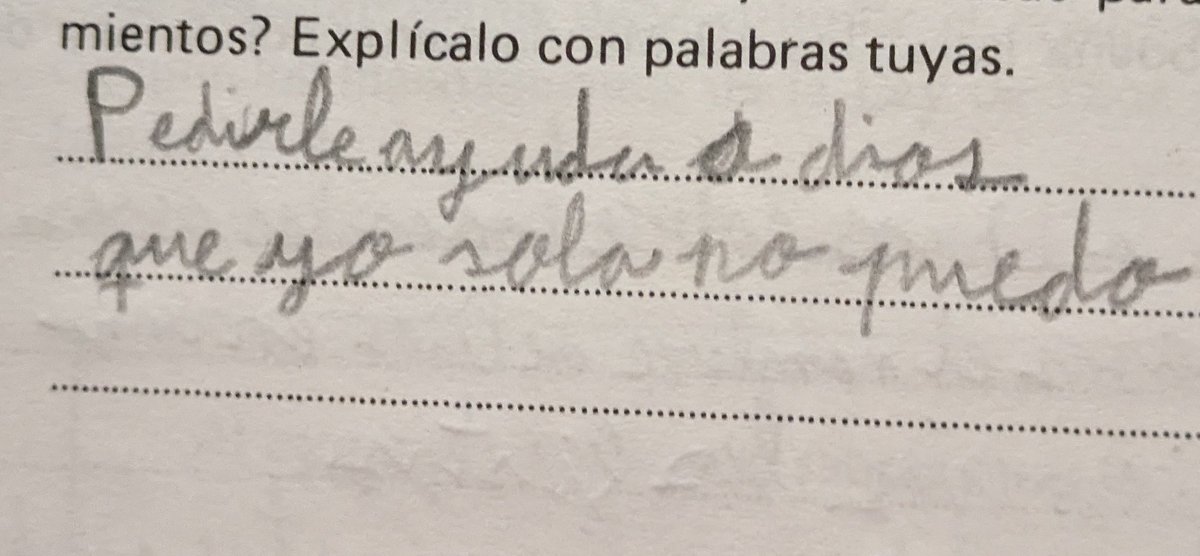 mientos? Explícalo con palabras tuyas.
Pedirle ayuda a dios
que yo sola no puedo